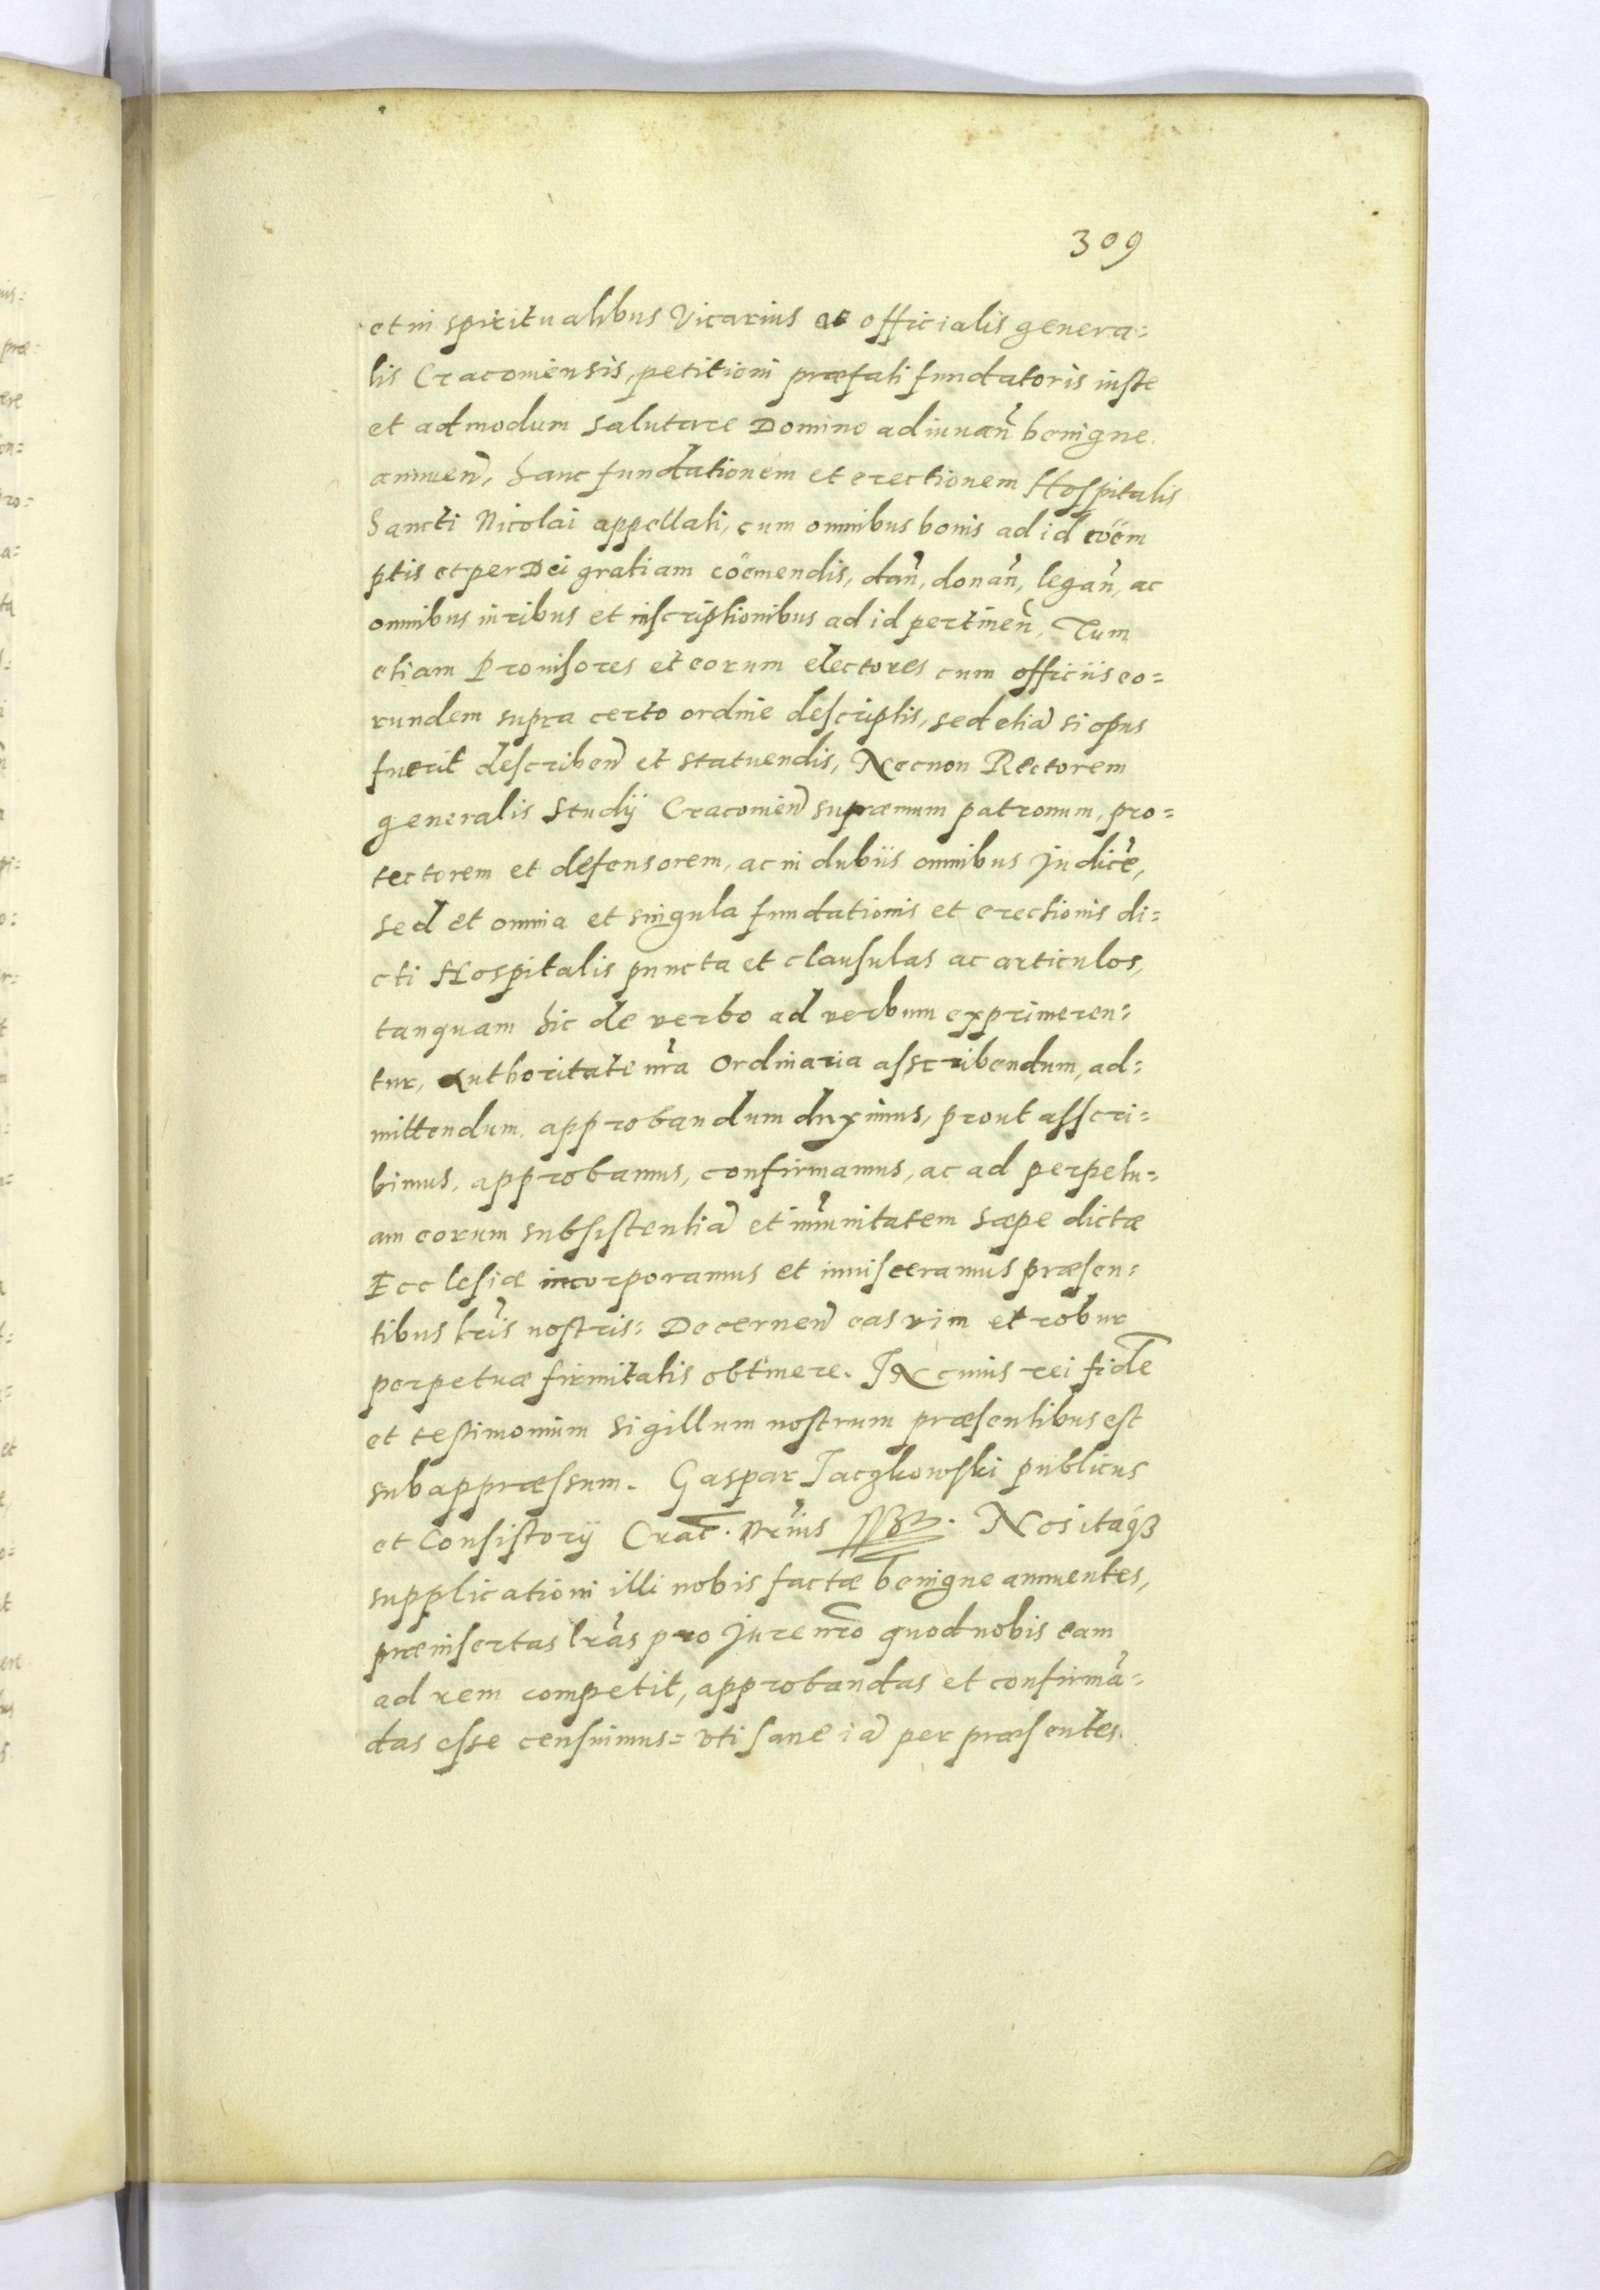 309
et in spiritualibus Vicarius ac officialis genera=
lis Cracouiensis, petitioni præfati fundatoris iuste
et admodum salutare Domino adiuuan̄ benigne
annuen̄, hanc fundationem et erectionem Hospitalis
Sancti Nicolai appellati, cum omnibus bonis ad id coëm
ptis et per Dei gratiam coëmendis, dan̄, donan̄, legan̄, ac
omnibus iuribus et inscriptionibus ad id pertinen̄, Tum
etiam Prouisores et eorum electores cum officiis eo=
rundem supra certo ordine descriptis, sed etiā si opus
fuerit describen̄ et statuendis, Necnon Rectorem
generalis Studij Cracouien̄ supræmum patronum, pro=
tectorem et defensorem, ac in dubiis omnibus Judicē,
sed et omnia et singula fundationis et erectionis di=
cti Hospitalis puncta et clausulas ac articulos,
tanquam hic de verbo ad verbum exprimeren=
tur, Authoritate nr̄a Ordinaria asscribendum, ad=
mittendum, approbandum duximus, prout asscri=
bimus, approbamus, confirmamus, ac ad perpetu=
am eorum subsistentiā et im̄unitatem sæpe dictæ
Ecclesiæ incorporamus et inuisceramus præsen=
tibus lr̄is nostris= Decernen̄ eas vim et robur
perpetuæ firmitatis obtinere. IN cuius rei fidē
et testimonium sigillum nostrum præsentibus est
subappræssum. Gaspar Jaczkowski publicus
et Consistorij Crac̄. Nr̄ius. Nos itaqȝ
supplicationi illi nobis factæ benigne annuentes,
præinsertas lr̄as pro Jure nr̄o quod nobis eam
ad rem competit, approbandas et confirmā=
das esse censuimus= vti sane iā per præsentes